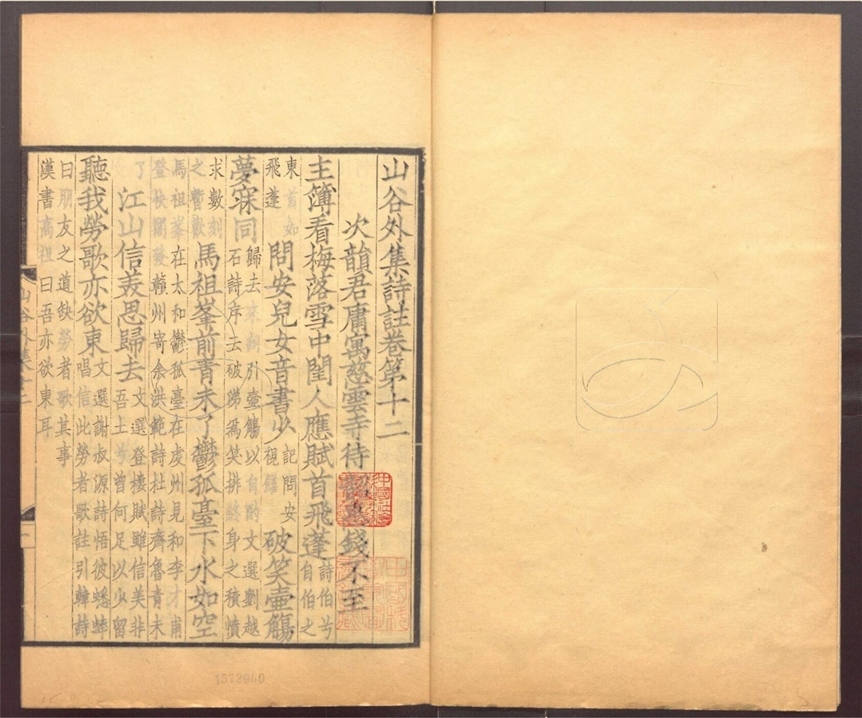 山谷外集詩註卷第十二
次韻君庸寓慈雲寺待惠錢不至
主簿看梅落雪中閨人應賦首飛蓬
詩伯兮
自伯之
東首如
飛蓬
問安兒女音書少
記問安
視饍
破笑壺觴
夢寐同
歸去來詞引壺觴以自酌文選劉越
石詩序云破涕爲笑排終身之積憤
求數刻
之暫歡
馬祖峯前青未了鬱孤臺下水如空
馬祖峯在太和鬱孤臺在虔州見和李才甫
登快閣後贛州寄余洪範詩杜詩齊魯青未
了
江山信美思歸去
文選登樓賦雖信美非
吾土兮曾何足以少留
聽我勞歌亦欲東
文選謝叔源詩悟彼蟋蟀
唱信此勞者歌註引韓詩
曰朋友之道缺勞者歌其事
漢書高祖曰吾亦欲東耳
山谷外集十二
一